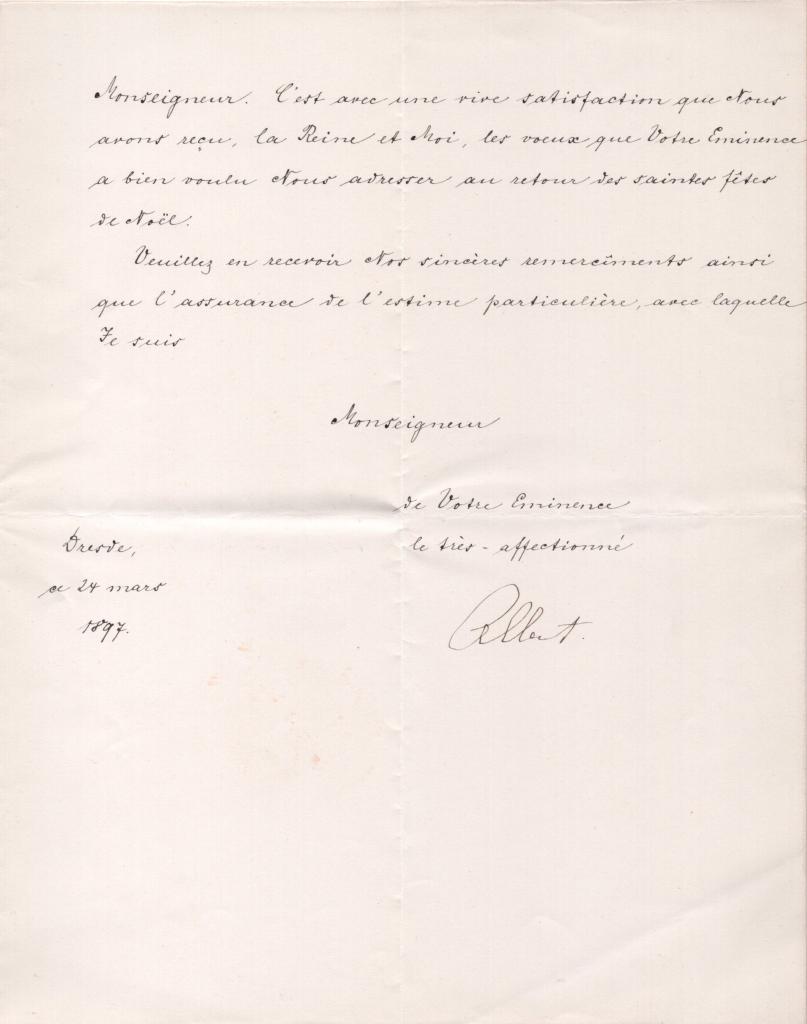 Monseigneur. C'est avec une vive satisfaction que Nous
avons reçu, la Reine et Moi, les voeux que Votre Eminence
a bien voulu Nous adresser au retour des saintes fêtes
de Noël.
Veuillez en recevoir Nos sincères remercîments ainsi
que l'assurance de l'estime particulière, avec laquelle
Je suis
Monseigneur
de Votre Eminence
le très-affectionné
Dresde,
ce 24 mars
1897.
Albert.